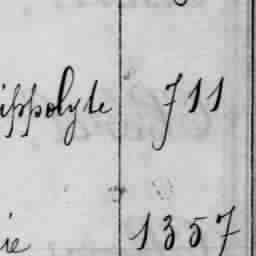 ippolyte 711
ie 1357